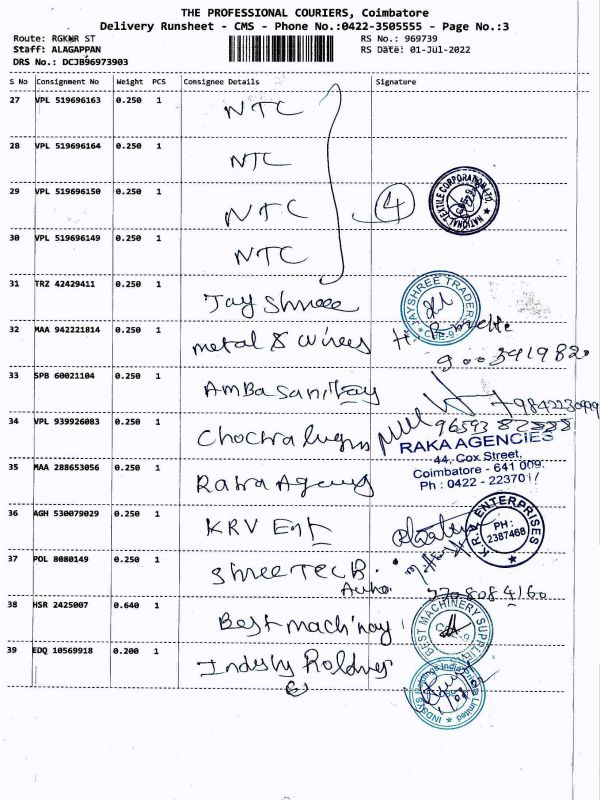 THE PROFESSIONAL COURIERS, Coimbatore
Delivery Runsheet - CMS - Phone No.:0422-3505555 - Page No.:3
Route: RGKWR ST
RS No.: 969739
Staff: ALAGAPPAN
RS Date: 01-Jul-2022
DRS No.: DCJB96973903
S No Consignment No Weight PCS Consignee Details Signature
27 VPL 519696163 0.250 1 NTC
28 VPL 519696164 0.250 1 NTC
29 VPL 519696150 0.250 1 NTC
4
NATIONAL TEXTILE CORPORATION LTD.
30 VPL 519696149 0.250 1 NTC
31 TRZ 42429411 0.250 1 Jay Shree
JAYSHREE TRADERS
32 MAA 942221814 0.250 1 metal & wires
33 SPB 60021104 0.250 1 Amba Sanitary
34 VPL 939926083 0.250 1
RAKA AGENCIES
44, Cox Street,
Coimbatore - 641 009.
35 MAA 288653056 0.250 1 Raka Agency
36 AGH 530079029 0.250 1 KRV Ent
ENTERPRISES
PH :
2387468
37 POL 8080149 0.250 1 Shree TEC B
Auto
38 HSR 2425007 0.640 1 Best machinay
BEST MACHINERY SUPPLIERS
39 EDQ 10569918 0.200 1